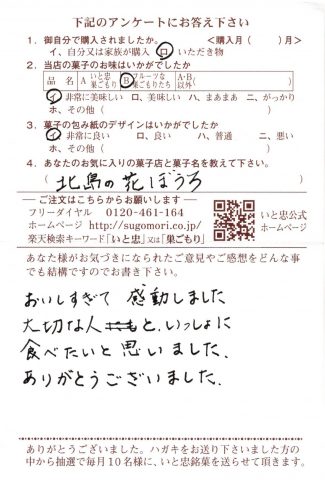 下記のアンケートにお答え下さい
1. 御自分で購入されましたか。 <購入月( )月>
イ、自分又は家族が購入 ロ、いただき物
2. 当店の菓子のお味はいかがでしたか
品名 A いと忠巣ごもり B フルーツな巣ごもりたち A・B以外( )
イ、非常に美味しい ロ、美味しい ハ、まあまあ ニ、がっかり
ホ、その他( )
3. 菓子の包み紙のデザインはいかがでしたか
イ、非常に良い ロ、良い ハ、普通 ニ、悪い
ホ、その他( )
4. あなたのお気に入りの菓子店と菓子名を教えて下さい。
( 北島の花ぼうろ )
ご注文はこちらからもお受けいたします
フリーダイヤル 0120-461-164
ホームページ http://sugomori.co.jp/
楽天検索キーワード「いと忠」又は「巣ごもり」
いと忠公式
ホームページ
あなた様がお気づきになられたご意見やご感想をどんな事
でも結構ですのでお書き下さい。
おいしすぎて 感動しました
大切な人と、いっしょに
食べたいと思いました。
ありがとうございました。
ありがとうございました。ハガキをお送り下さいました方の
中から抽選で毎月10名様に、いと忠銘菓を送らせて頂きます。